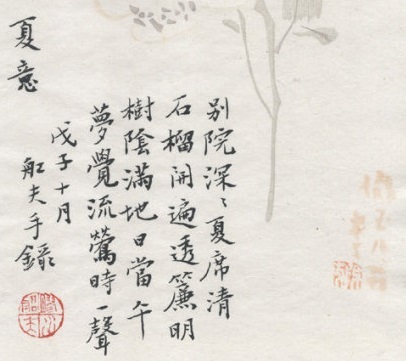 別院深〻夏席清
石榴開遍透簾明
樹陰滿地日當午
夢覺流鶯時一聲
戊子十月
舡夫手錄
夏意